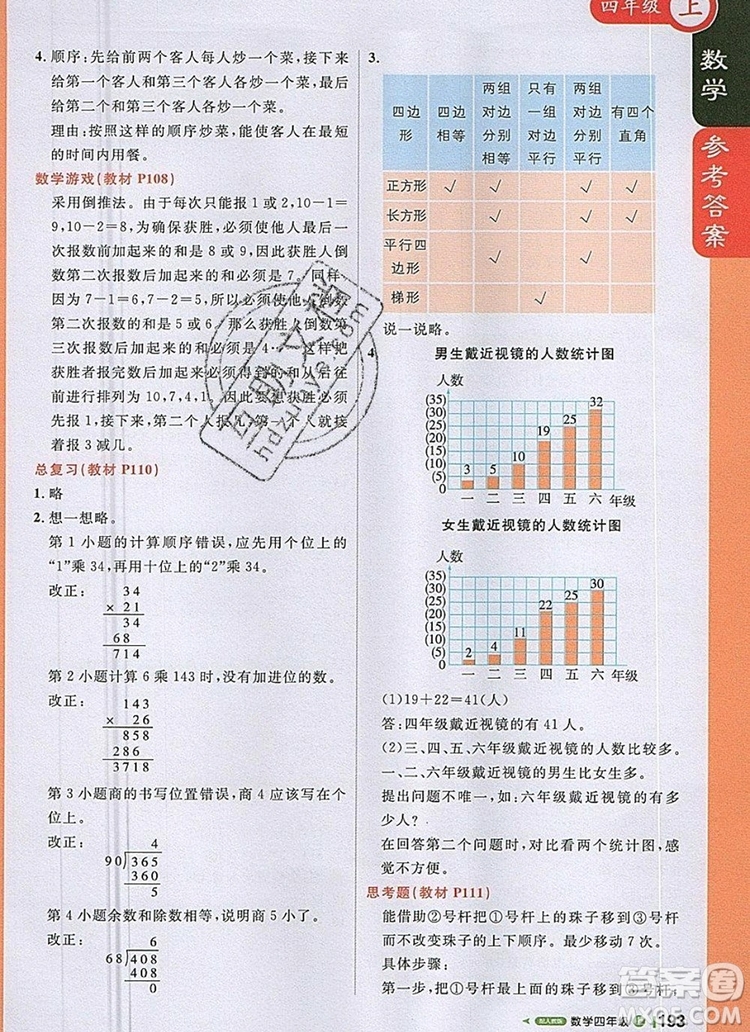 四年级 上
数学
参考答案
4. 顺序:先给前两个客人每人炒一个菜,接下来
给第一个客人和第三个客人各炒一个菜,最后
给第二个客人和第三个客人各炒一个菜。
理由:按照这样的顺序炒菜,能使客人在最短
的时间内用餐。
数学游戏(教材 P108)
采用倒推法。由于每次只能报 1 或 2,10-1=
9,10-2=8,为确保获胜,必须使他人倒数第
一次报数后加起来的和是 8 或 9,而获胜人倒数
第二次报数后加起来的和必须是 7。同样 7-1=
6,7-2=5,所以必须使他人倒数
第二次报数的和是 5 或 6,那么获胜人倒数第
三次报数后加起来的和必须是 4……这样就
获胜者报完数后加起来的和必须是从后往
前进行排列为 10,7,4,1。因此要想获胜必须
先报 1,接下来,第二个人报几,第一个人就接
着报 3 减几。
总复习(教材 P110)
1. 略
2. 想一想略。
第 1 小题的计算顺序错误,应先用个位上的
“1”乘 34,再用十位上的“2”乘 34。
改正: 34
× 21
34
68
714
第 2 小题计算 6 乘 143 时,没有加进位的数。
改正: 143
× 26
858
286
3718
第 3 小题商的书写位置错误,商 4 应该写在个
位上。
改正: 4
90)365
360
5
第 4 小题余数和除数相等,说明商 5 小了。
改正: 6
68)408
408
0
3.
四边形 四边相等 两组对边分别相等 只有一组对边平行 两组对边分别平行 有四个直角
正方形 √ √ √ √
长方形 √ √ √
平行四边形 √ √
梯形 √
说一说略。
4
男生戴近视镜的人数统计图
人数
(35)
(30) 32
(25) 25
(20) 19
(15)
(10) 10
(5) 3 5
0
一 二 三 四 五 六 年级
女生戴近视镜的人数统计图
人数
(35)
(30) 30
(25) 25
(20) 22
(15)
(10) 11
(5) 2 4
0
一 二 三 四 五 六 年级
(1)19+22=41(人)
答:四年级戴近视镜的有 41 人。
(2)三、四、五、六年级戴近视镜的人数比较多。
一、二、六年级戴近视镜的男生比女生多。
提出问题不唯一,如:六年级戴近视镜的有多
少人?
在回答第二个问题时,对比看两个统计图,
感觉不方便。
思考题(教材 P111)
能借助②号杆把①号杆上的珠子移到③号杆
而不改变珠子的上下顺序。移动 7 次。
具体步骤:
第一步,把①号杆最上面的珠子移到③号杆;
配人教版 数学四年级 上 193
答案圈
MXQE.COM